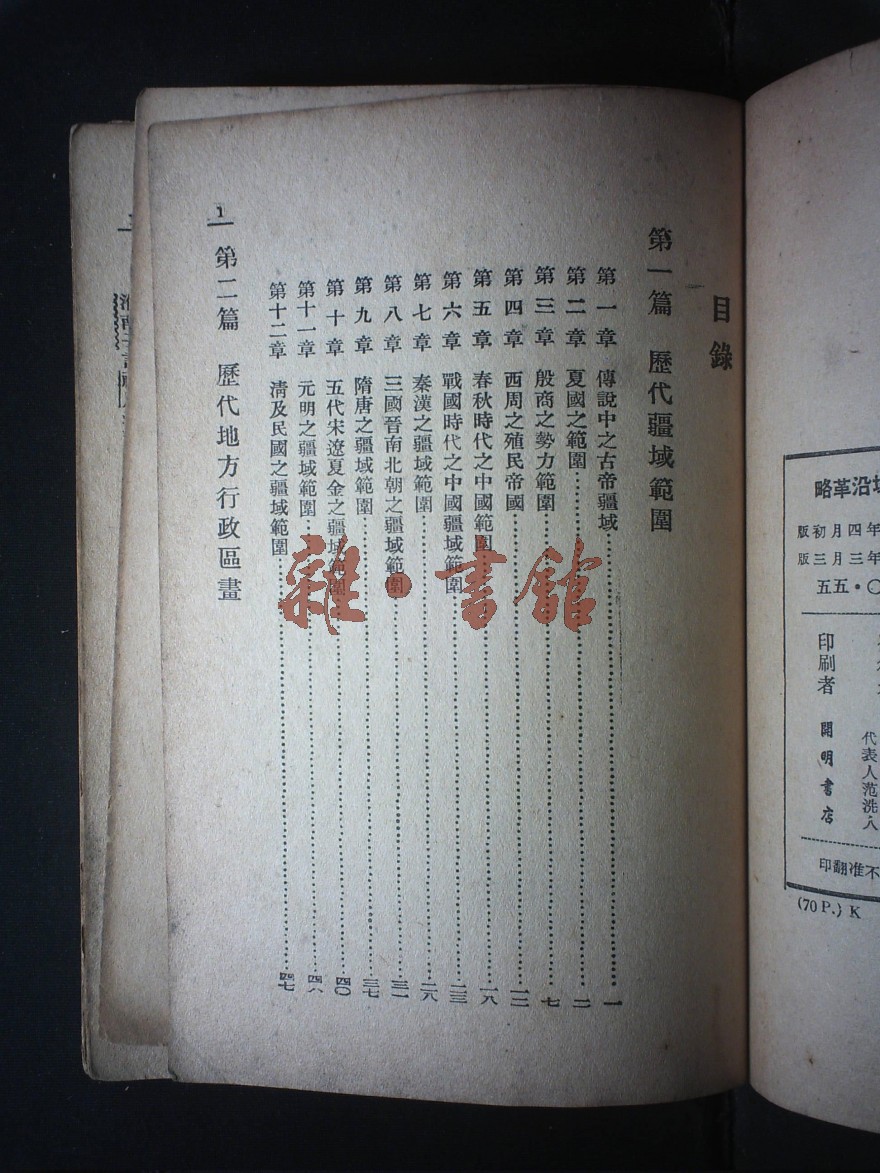 目錄
第一篇 歷代疆域範圍
第一章 傳說中之古帝疆域……一
第二章 夏國之範圍……二
第三章 殷商之勢力範圍……七
第四章 西周之殖民帝國……一二
第五章 春秋時代之中國範圍……一八
第六章 戰國時代之中國疆域範圍……二三
第七章 秦漢之疆域範圍……二八
第八章 三國晉南北朝之疆域範圍……三一
第九章 隋唐之疆域範圍……三七
第十章 五代宋遼夏金之疆域範圍……四〇
第十一章 元明之疆域範圍……四六
第十二章 清及民國之疆域範圍……四七
第二篇 歷代地方行政區畫
1
雜·書館
略革沿域
版初月四年
版三月三年
五五·〇
代表人范洗人
印刷者 開明書店
印翻准不
(70 P.) K